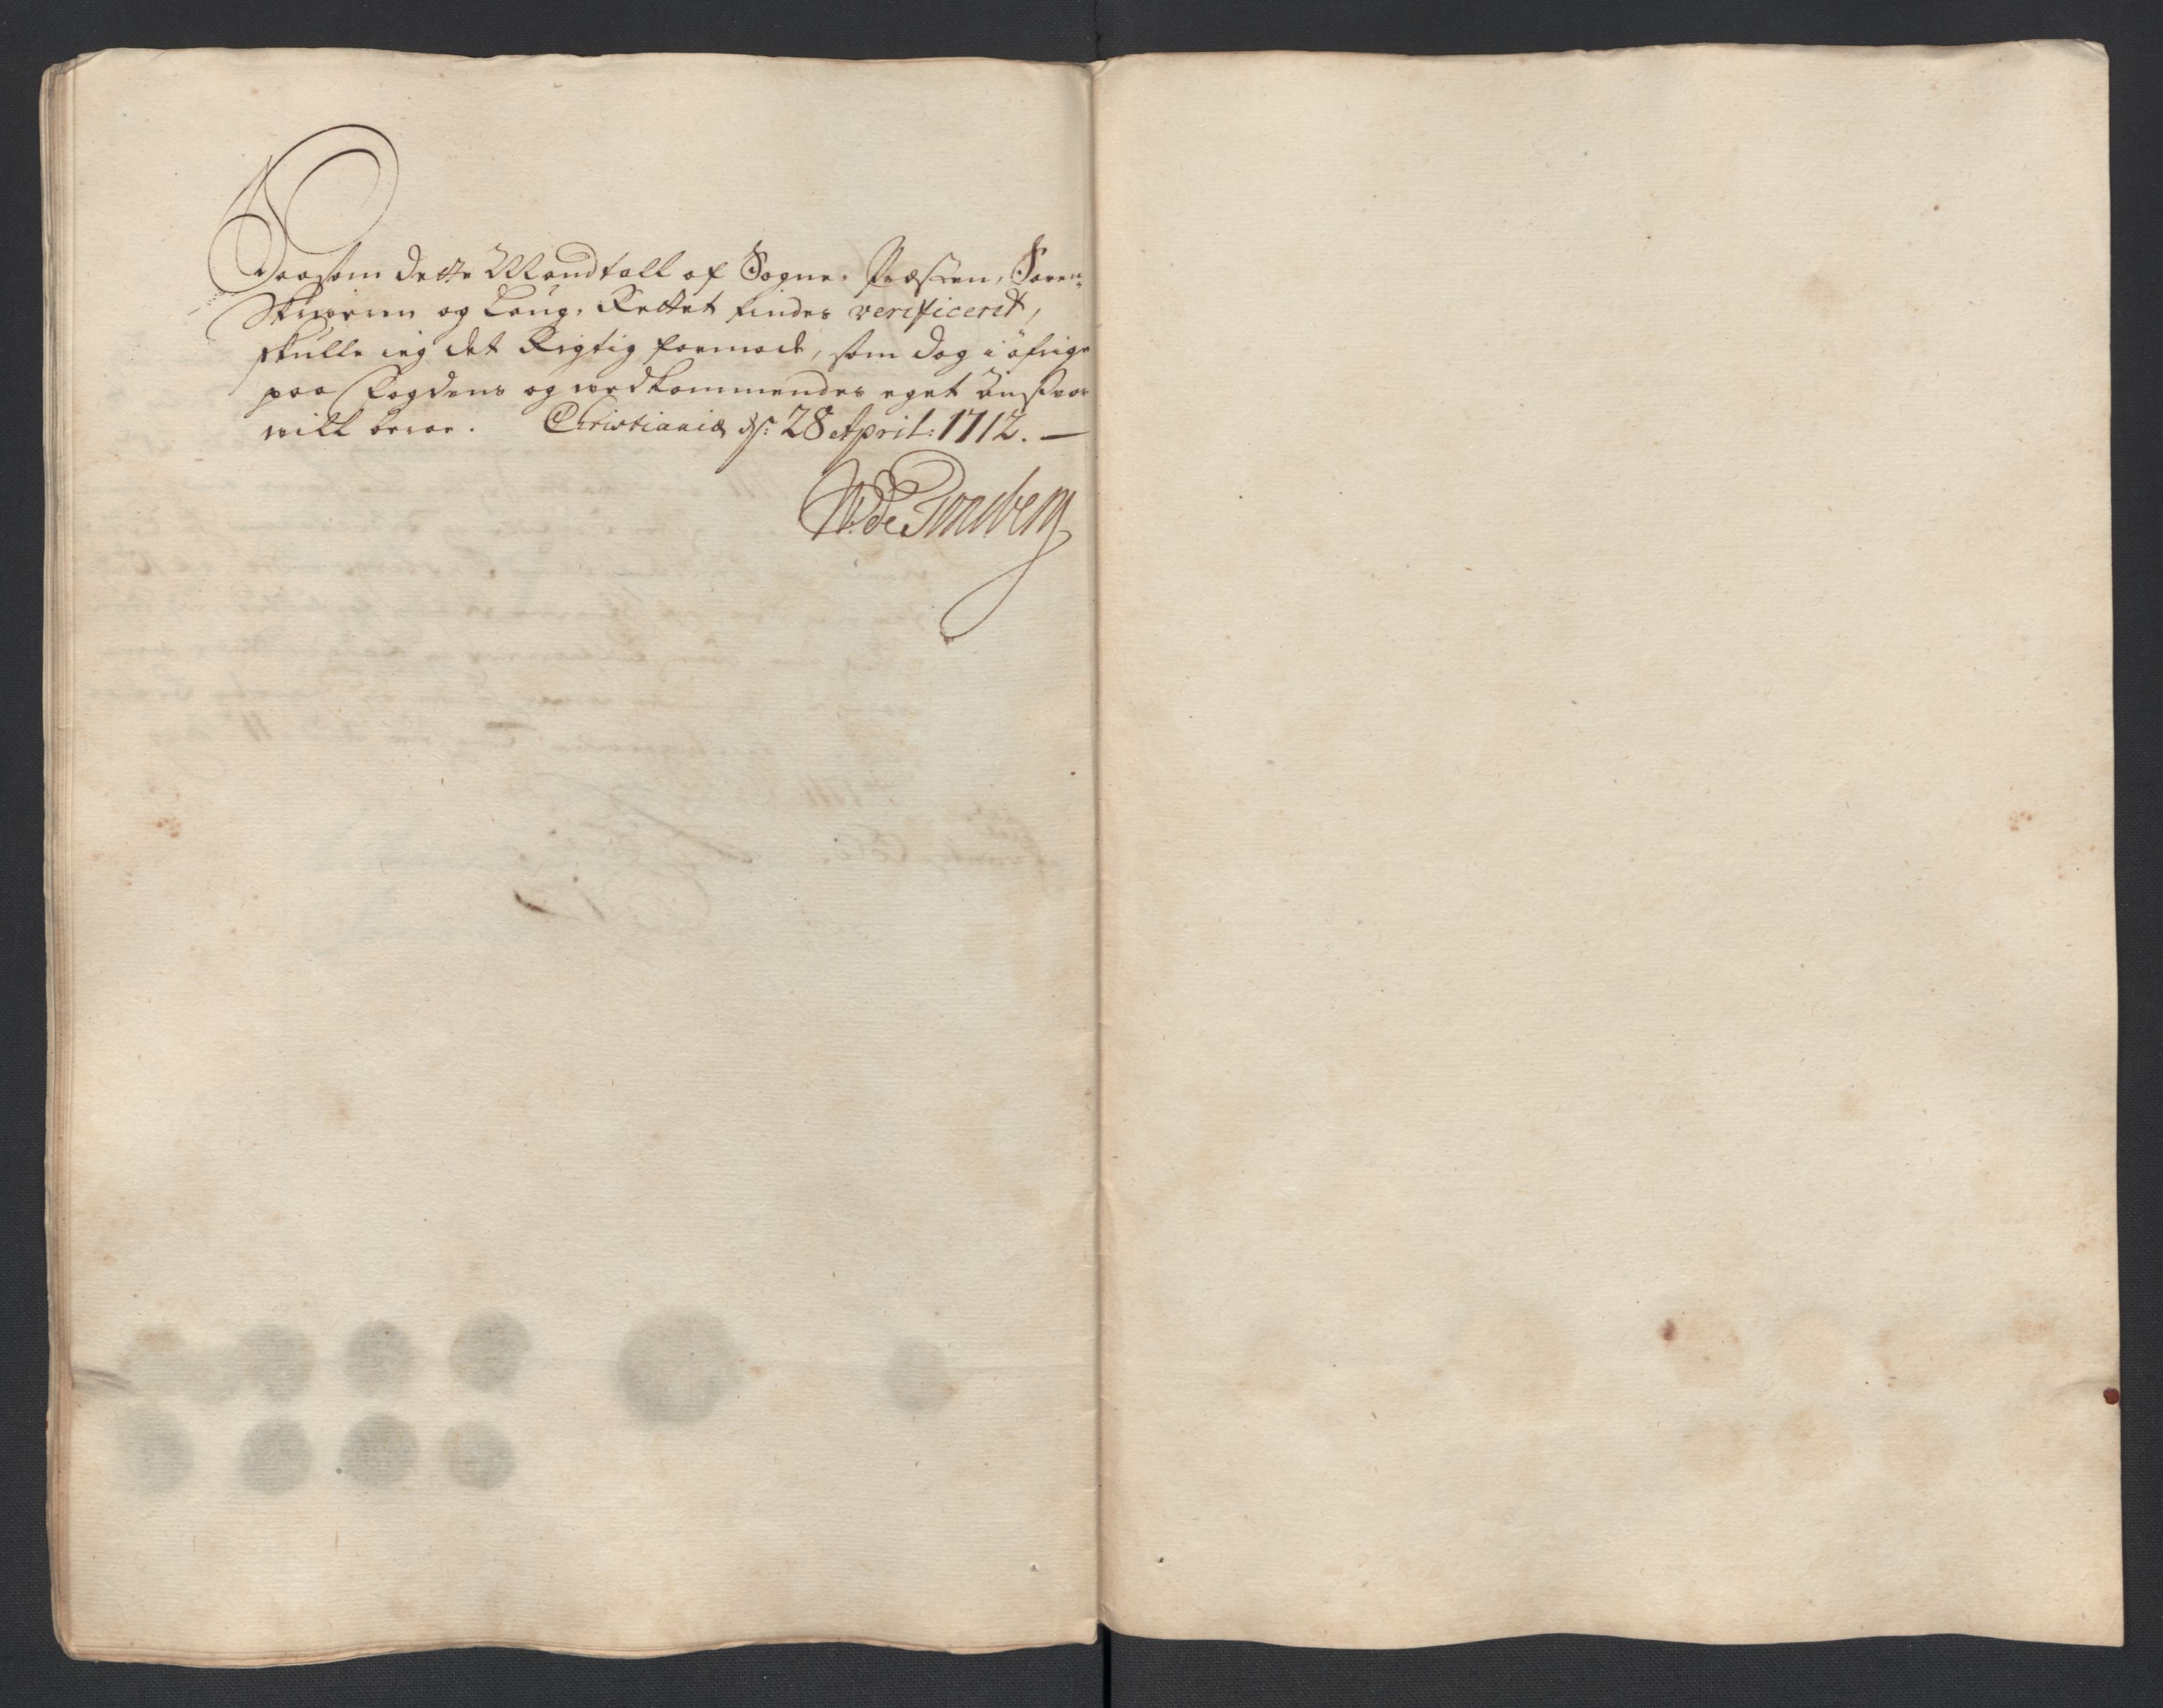 Saasom dette Mandtall af Sogne-Præsten, Soren-
Skriveren og Laug-Rettet findes verificerit,
skulle ieg det Rigtig formode, som dog i öfrige
paa Fogdens og vedkommendes eget Ansvar
vill beroe. Christiania ds: 28 April: 1712. —
W. de Tonsberg